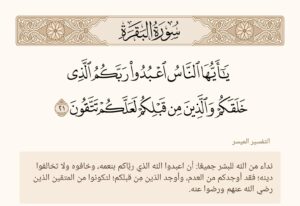 سُورَةُ البَقَرَةِ
يَٰٓأَيُّهَا ٱلنَّاسُ ٱعۡبُدُواْ رَبَّكُمُ ٱلَّذِي
خَلَقَكُمۡ وَٱلَّذِينَ مِن قَبۡلِكُمۡ لَعَلَّكُمۡ تَتَّقُونَ ٢١
التفسير الميسر
نداء من الله للبشر جميعًا: أن اعبدوا الله الذي ربَّاكم بنعمه، وخافوه ولا تخالفوا
دينه؛ فقد أوجدكم من العدم، وأوجد الذين من قبلكم؛ لتكونوا من المتقين الذين
رضي الله عنهم ورضوا عنه.